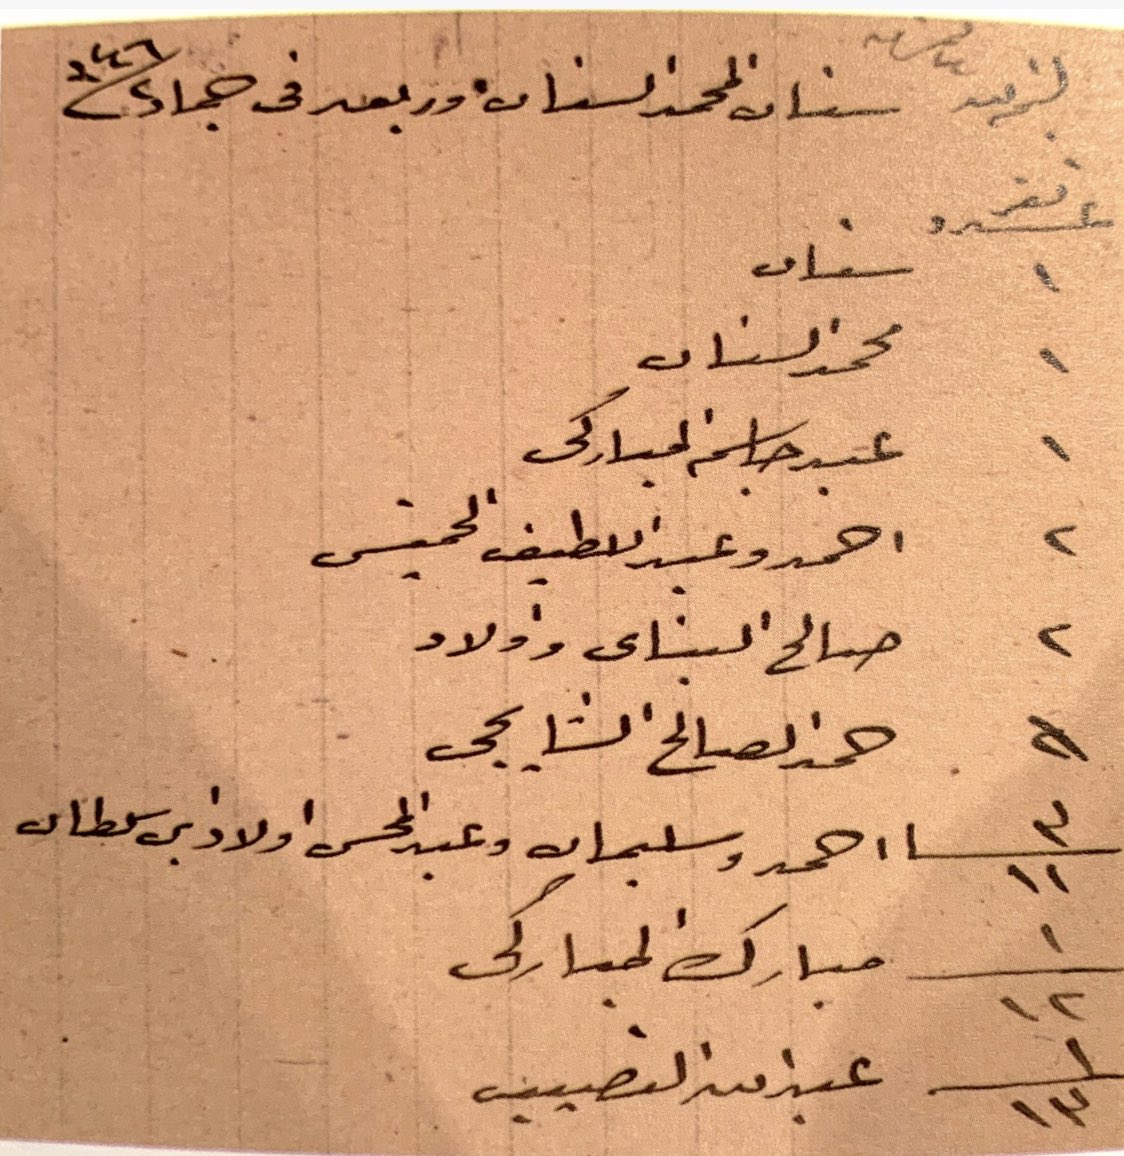 سنان المحمد السنان وربعه في جماد ٢ ٣٤٦
عدد نفر
١ سنان
١ محمد السنان
١ عبد جاسم المباركي
٢ احمد وعبد اللطيف الخميس
٢ صالح البناي واولاد
حمد الصالح الشايجي
٣ احمد وسليمان وعبد المحسن اولاد بن سلطان
١١
١ مبارك المباركي
١٢
١ عبد الله النصيب
١٣